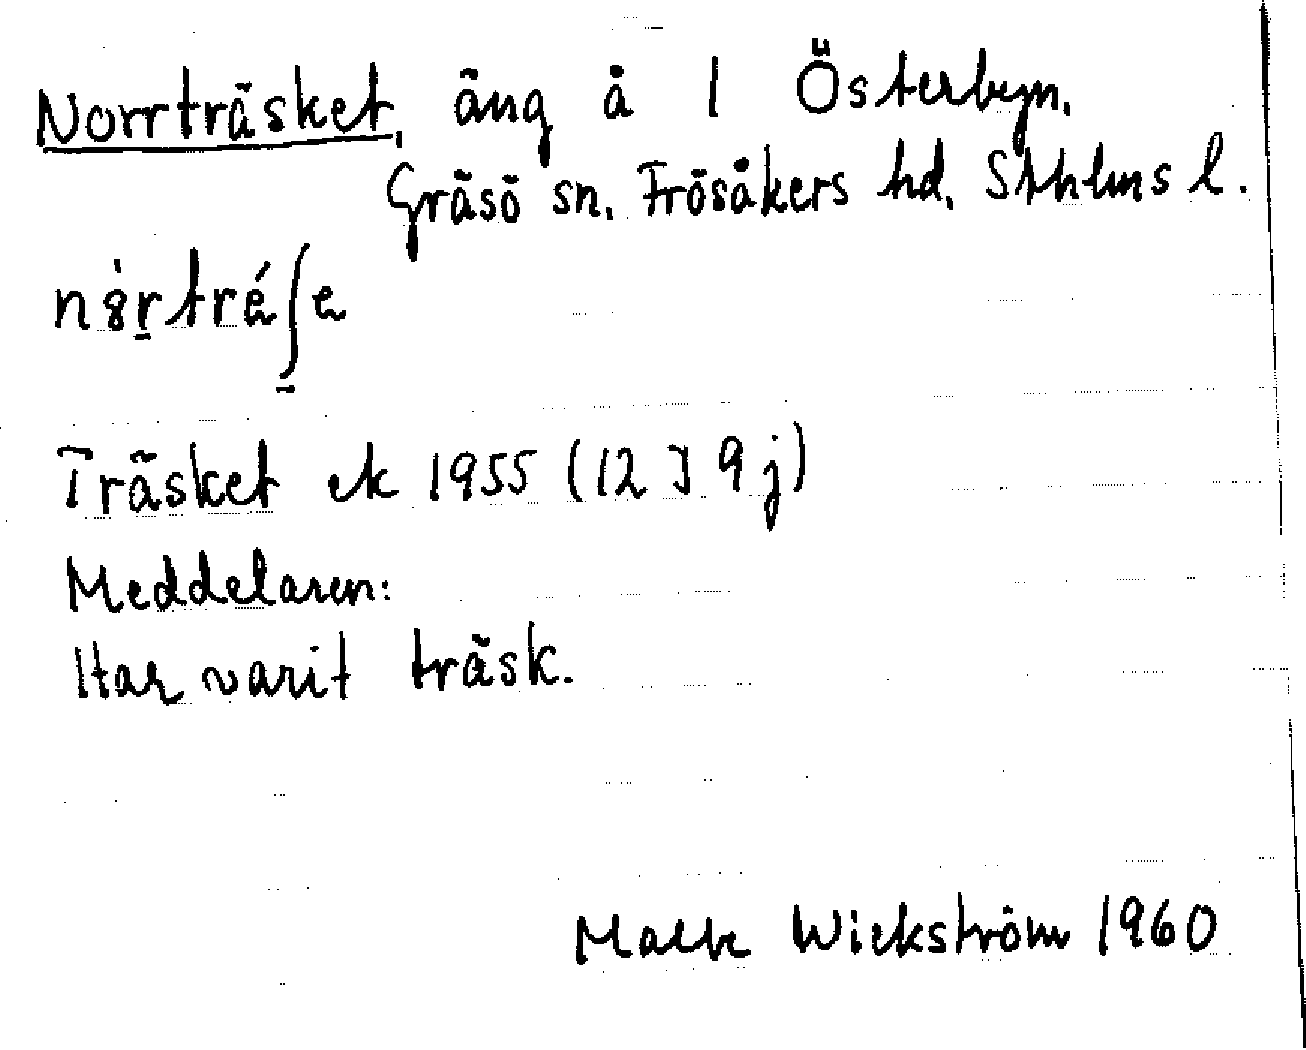 Norrträsket, äng å 1 Österbyn.
Gräsö sn. Frösåkers hd. Sthlms l.
Träsket ek 1955 (12 I 9 j)
Meddelaren:
Har varit träsk.
Wickström 1960